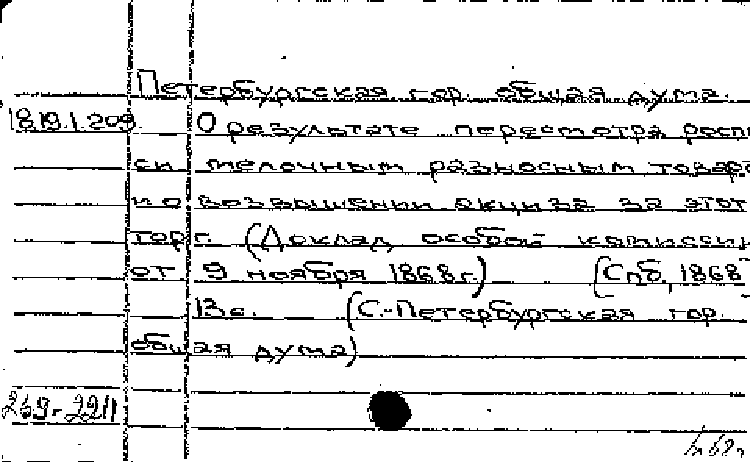 Петербургская гор. общая дума.
18.19.1.209. О результате пересмотра роспи
си мелочным разносным товара
и о возвышении акциза за этот
торг. (Доклад особой комиссии
от 9 ноября 1868г.) (Спб, 1868
13с. (С.-Петербургская гор.
общая дума)
269-2211